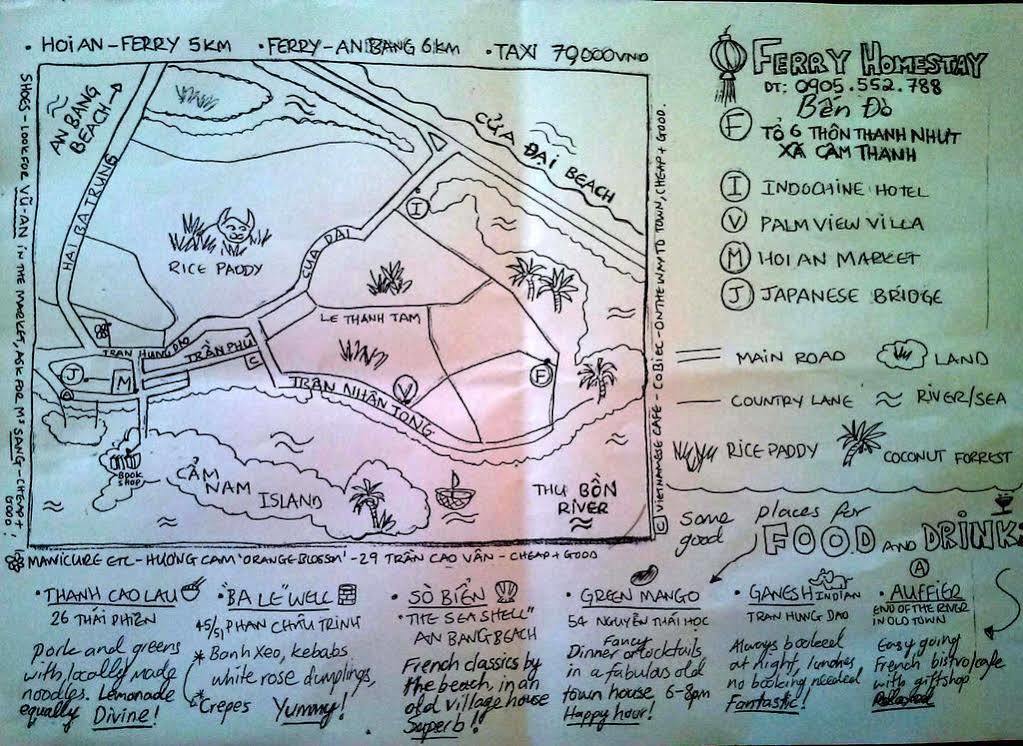 • HOI AN – FERRY 5 KM • FERRY – AN BANG 6 KM • TAXI 79000VND
FERRY HOMESTAY
DT: 0905.552.788
Bến Đò
F TỔ 6 THÔN THANH NHỨT
XÃ CẨM THANH
I INDOCHINE HOTEL
V PALM VIEW VILLA
M HOI AN MARKET
J JAPANESE BRIDGE
MAIN ROAD
LAND
COUNTRY LANE
RIVER/SEA
RICE PADDY
COCONUT FORREST
SHOES – LOOK FOR VŨ-AN in THE MARKET, ASK FOR Ms SANG – CHEAP + GOOD!
AN BANG
BEACH →
HAI BA TRUNG
CỬA ĐẠI BEACH
I
RICE PADDY
CUA DAI
LE THANH TAM
TRAN HUNG DAO
TRẦN PHÚ
J
M
C
TRẦN NHÂN TONG
V
F
A
BOOK
SHOP
CẨM
NAM
ISLAND
THU BỒN
RIVER
C VIETNAMESE CAFE – CO BIEC – ON THE WAY TO TOWN, CHEAP + GOOD.
MANICURE ETC – HUONG CAM 'ORANGE BLOSSM' – 29 TRẦN CAO VÂN – CHEAP + GOOD
Some good places for
FOOD AND DRINK:
• THANH CAO LAU
26 THÁI PHIÊN
pork and greens
with, locally made
noodles. Lemonade
equally Divine!
• "BA LE" WELL
45/51 PHAN CHÂU TRINH
* Banh Xeo, kebabs
white rose dumplings,
* Crepes Yummy!
• SÒ BIỂN
"THE SEA SHELL"
AN BANG BEACH
French classics by
the beach, in an
old village house
Superb!
• GREEN MANGO
54 NGUYỄN THÁI HỌC
Fancy
Dinner or cocktails
in a fabulous old
town house 6-8pm
Happy hour!
• GANESH INDIAN
TRAN HUNG DAO
Always booked
at night, lunches,
no booking needed
Fantastic!
A
• AUFFIER
END OF THE RIVER
IN OLD TOWN
Easy going
French bistro/cafe
with giftshop
Relaxed